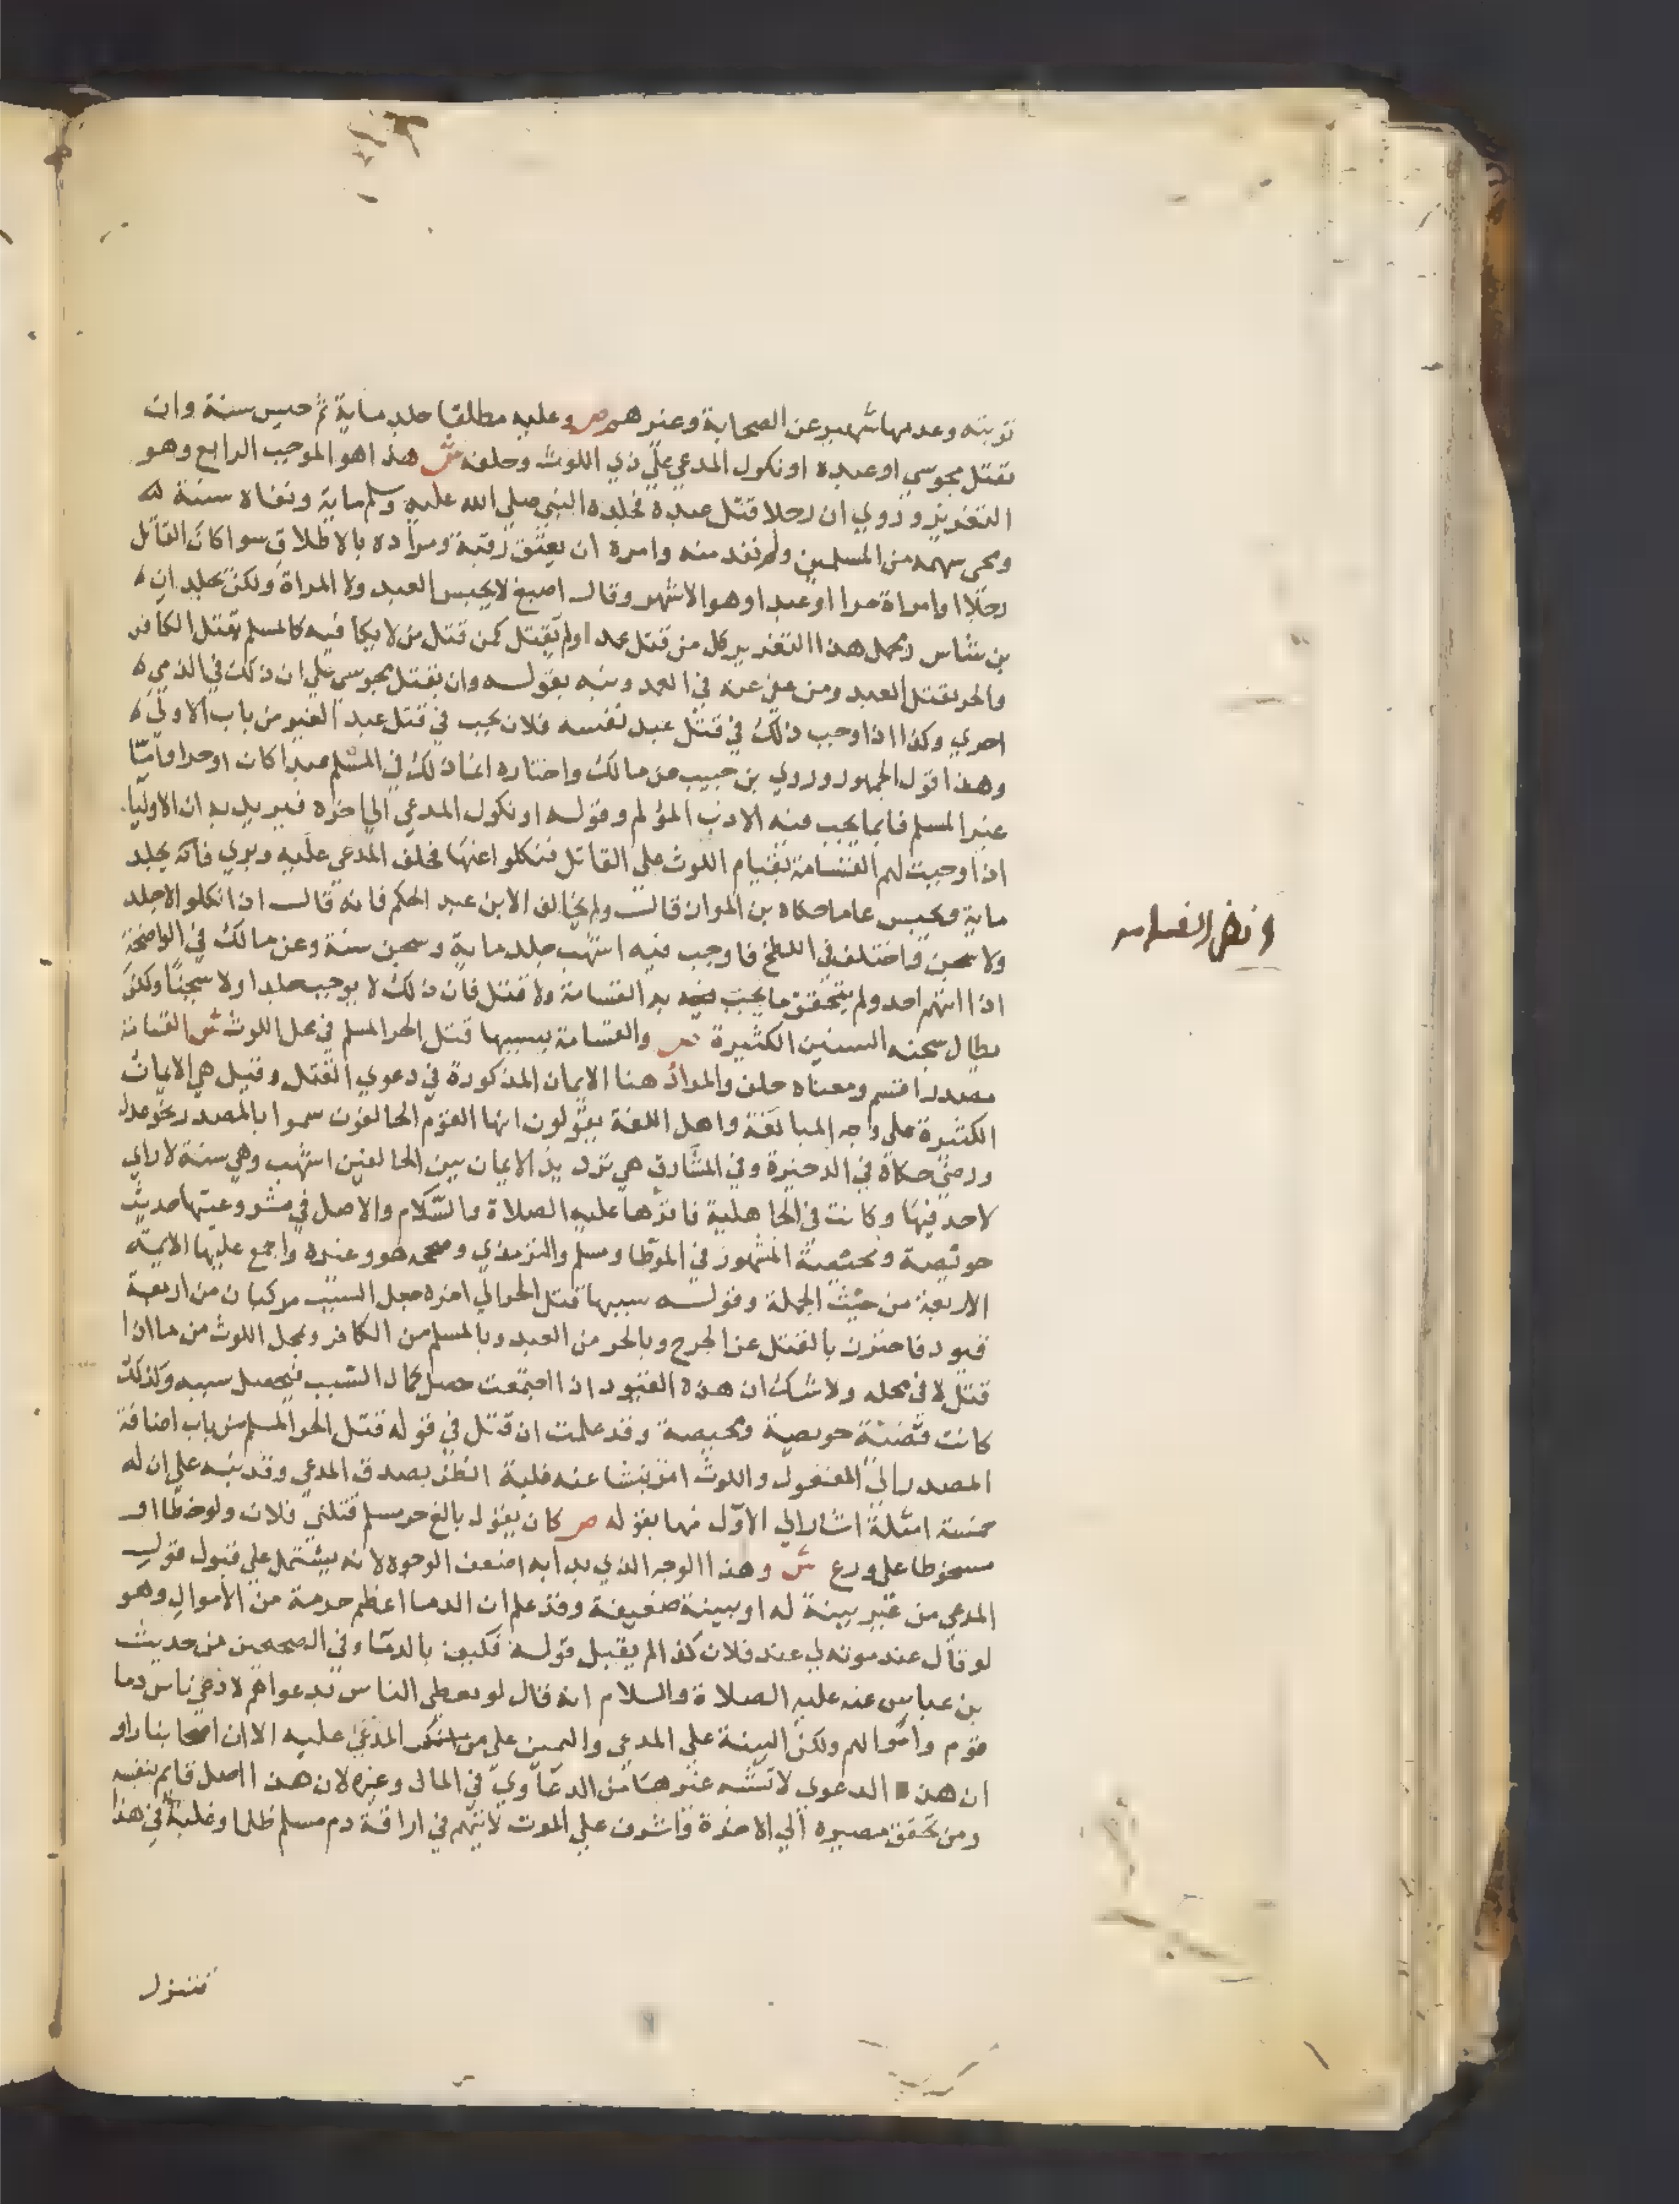 توبته وعدمها شهير عن الصحابة وغيرهم ص وعليه مطلقا جلد ماية ثم حبس سنة وان
بقتل مجوسي او عبده او نكول المدعي علي ذي اللوث وحلفه ش هذا هو الموجب الرابع وهو
التعزير وروي ان رجلا قتل عبده فجلده النبي صلي الله عليه وسلم ماية ونفاه سنة
ومحى سهمه من المسلمين ولم تقد منه وامره ان يعتق رقبة ومراده بالاطلاق سوا كان القاتل
رجلا او امراة حرا او عبدا وهو الاشهر وقال اصبغ لا يحبس العبد ولا المراة ولكن يجلدان
بن شاس ومحمل هذا التعزير كل من قتل عمدا ولم يقتل كمن قتل من لا يكافيه كالمسلم يقتل الكافر
والحر يقتل العبد ومن عفي عنه في العمد ونبه بقوله وان بقتل مجوسي علي ان ذلك في الذمي
احري وكذا اذا وجب ذلك في قتل عبد نفسه فلان يجب في قتل عبد الغير من باب الاولي
وهذا قول الجمهور وروي بن حبيب عن مالك واختاره انما ذلك في المسلم عبدا كان او حرا واما
غير المسلم فانما يجب فيه الادب المؤلم وقوله او نكول المدعي الي اخره فيريد به ان الاوليا
اذا وجبت لهم القسامة بقيام اللوث علي القاتل فنكلوا عنها فحلف المدعي عليه وبري فانه يجلد
ماية ويحبس عاما حكاه بن المواز قال ولم يخالف الا بن عبد الحكم فانه قال اذا نكلوا لا جلد
ولا سجن واختلف في اللطخ فاوجب فيه اشهب جلد ماية وسجن سنة وعن مالك في الواضحة
اذا اتهم احد ولم يتحقق ما يجب به القسامة ولا قتل فان ذلك لا يوجب جلدا ولا سجنا ولكن
يطال سجنه السنين الكثيرة ص والقسامة بسببها قتل الحر المسلم في محل اللوث ش القسامة
مصدر اقسم ومعناه حلف والمراد هنا الايمان المذكورة في دعوي القتل وقيل هي الايمان
الكثيرة علي وجه المبالغة واهل اللغة يقولون انها القوم الحالفون سموا بالمصدر نحو عدل
ورضي حكاه في الدخيرة وفي المشارق هي ترديد الايمان بين الحالفين اشهب وهي سنة لا راي
لاحد فيها وكانت في الجاهلية فاقرها عليه الصلاة والسلام والاصل في مشروعيتها حديث
حويصة ومحيصة المشهور في الموطا ومسلم والترمذي وصححه هو وغيره واجمع عليها الايمة
الاربعة من حيث الجملة وقوله سببها قتل الحر الي اخره جعل السبب مركبا من اربعة
قيود فاحترز بالقتل عن الجرح وبالحر من العبد وبالمسلم من الكافر وبمحل اللوث من ما اذا
قتل لا في محله ولا شك ان هذه القيود اذا اجتمعت حصل كمال السبب فيحصل سببه وكذلك
كانت قضية حويصة ومحيصة وقد علمت ان قتل في قوله قتل الحر المسلم من باب اضافة
المصدر الي المفعول واللوث امر ينشا عنه غلبة الظن بصدق المدعي وقد نبه علي ان له
خمسة امثلة اشار الي الاول منها بقوله ص كان يقول بالغ حر مسلم قتلني فلان ولو خطا او
مسخوطا علي ورع ش وهذا الوجه الذي بدا به اضعف الوجوه لانه يشتمل علي قبول قول
المدعي من غير بينة له او بينة ضعيفة وقد علم ان الدما اعظم حرمة من الاموال وهو
لو قال عند موته لي عند فلان كذا لم يقبل قوله فكيف بالدما وفي الصحيحين من حديث
بن عباس عنه عليه الصلاة والسلام انه قال لو يعطي الناس بدعواهم لادعي ناس دما
قوم واموالهم ولكن البينة علي المدعي واليمين علي من انكر المدعي عليه الا ان اصحابنا راو
ان هذه الدعوي لا تشبه غيرها من الدعاوي في المال وغيره لان هذا اصل قايم بنفسه
ومن تحقق مصيره الي الاخرة واشرف علي الموت لا يتهم في اراقة دم مسلم ظلما وغلبة في هذا
تنزل